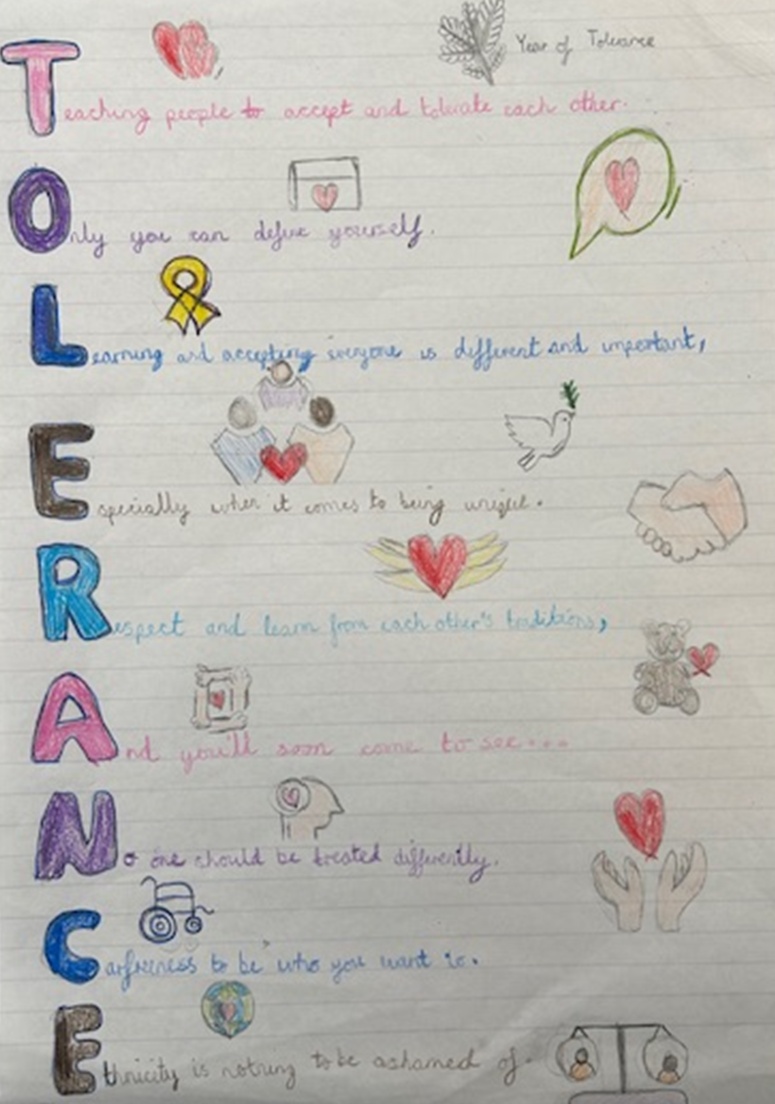 Year of Tolerance
Teaching people to accept and tolerate each other.
Only you can define yourself.
Learning and accepting everyone is different and important,
Especially when it comes to being unique.
Respect and learn from each other's traditions,
And you'll soon come to see...
No one should be treated differently.
to be who you want to.
Ethnicity is nothing to be ashamed of.